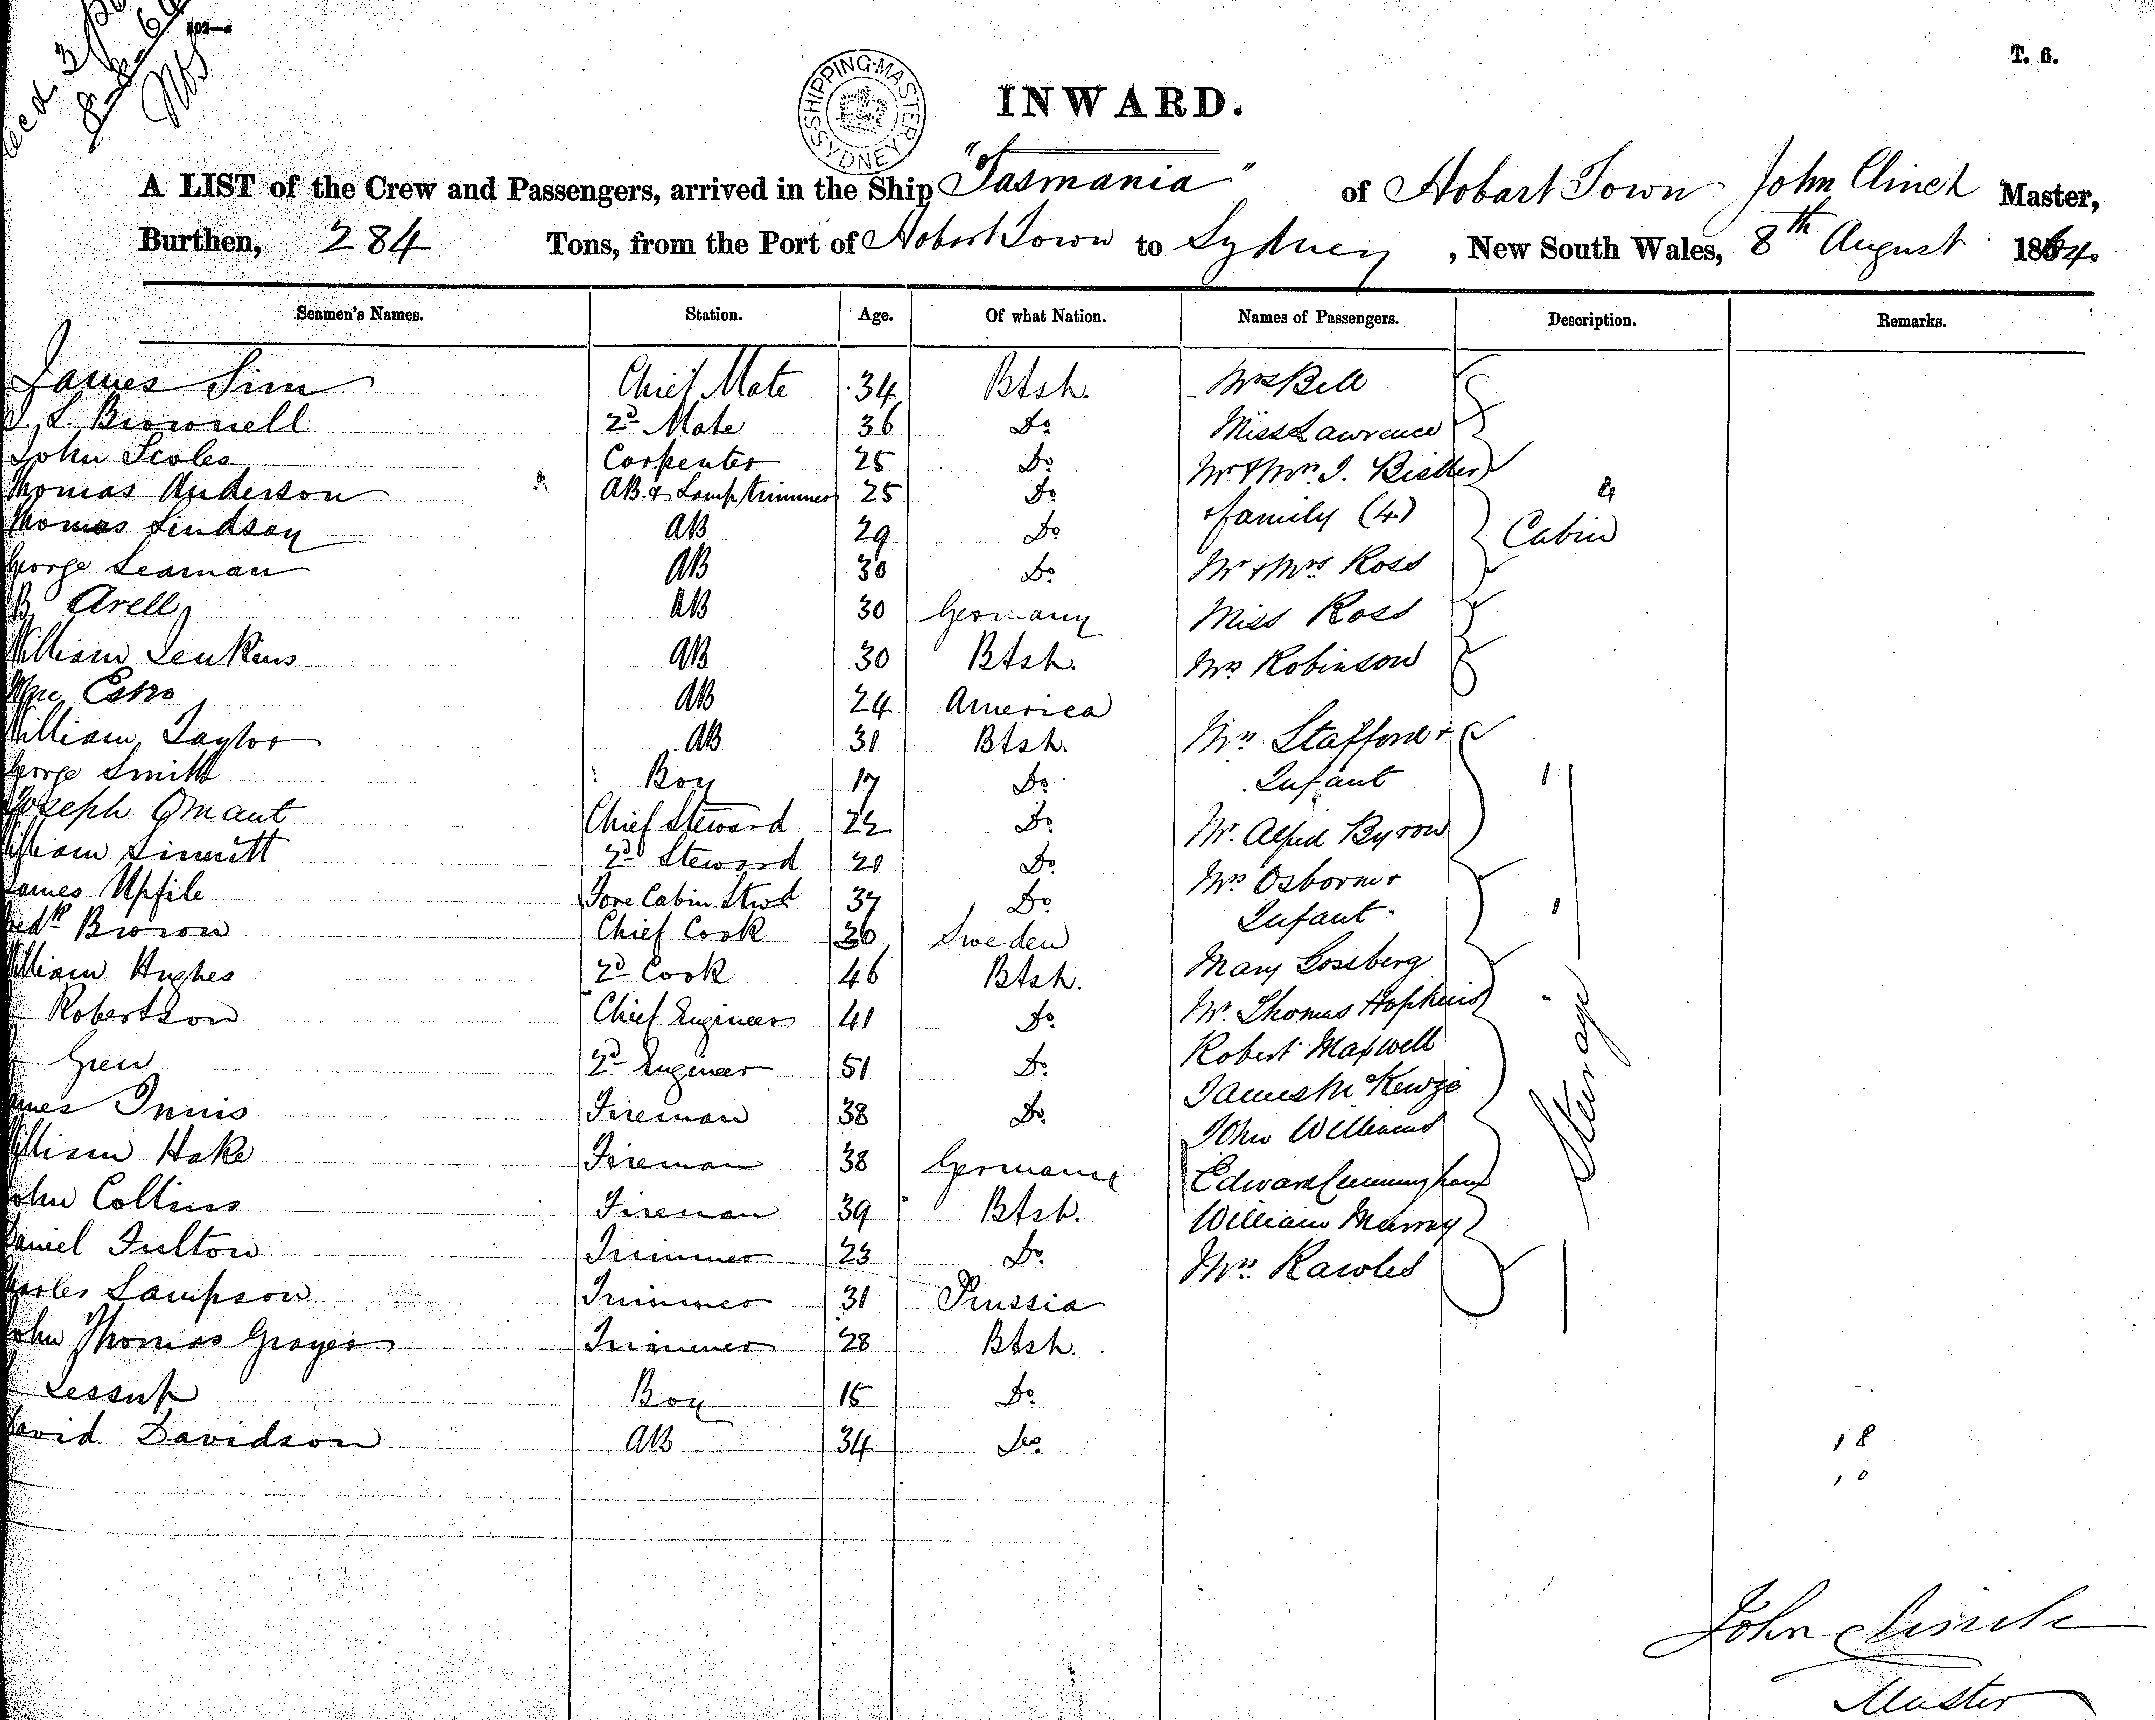 T. 6.
SHIPPING MASTER SYDNEY
INWARD.
A LIST of the Crew and Passengers, arrived in the Ship "Tasmania" of Hobart Town John Clinch Master,
Burthen, 284 Tons, from the Port of Hobart Town to Sydney, New South Wales, 8th August 1864.
Seamen's Names. Station. Age. Of what Nation. Names of Passengers. Description. Remarks.
James Sim Chief Mate 34 Btsh. Mrs Bell
L Brownell 2d Mate 36 Do Miss Lawrence
John Scoles Carpenter 25 Do Mr & Mrs J.
Thomas Anderson AB & Lamptrimmer 25 Do & family (4)
Thomas Lindsay AB 29 Do Cabin
George Seaman AB 30 Do Mr & Mrs Ross
Arell AB 30 Germany Miss Ross
William Jenkins AB 30 Btsh. Mrs Robinson
AB 24 America
William Taylor AB 31 Btsh. Mrs Stafford &
George Smith Boy 17 Do Infant
Joseph Omant Chief Steward 22 Do Mr. Alfred Byron
William Sinnitt 2d Steward 21 Do Mrs Osborne &
James Upfile Fore Cabin Stwd 37 Do Infant
Fredk Brown Chief Cook 36 Sweden
William Hughes 2d Cook 46 Btsh. Mary Gossberg
Robertson Chief Engineer 41 Do Mr. Thomas Hopkins
Green 2d Engineer 51 Do Robert Maxwell
James Innis Fireman 38 Do James McKenzie
John Williams
William Hake Fireman 38 Germany Edward Cunningham
John Collins Fireman 39 Btsh. William Murray
Daniel Fulton Trimmer 23 Do Mrs Rawles
Charles Sampson Trimmer 31 Prussia
John Thomas Grayer Trimmer 28 Btsh.
Jessup Boy 15 Do
David Davidson AB 34 Do
Steerage
18
10
John Clinch
Master